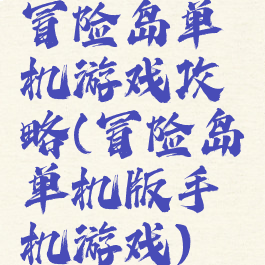 冒险岛单
机游戏攻
略(冒险岛
单机版手
机游戏)